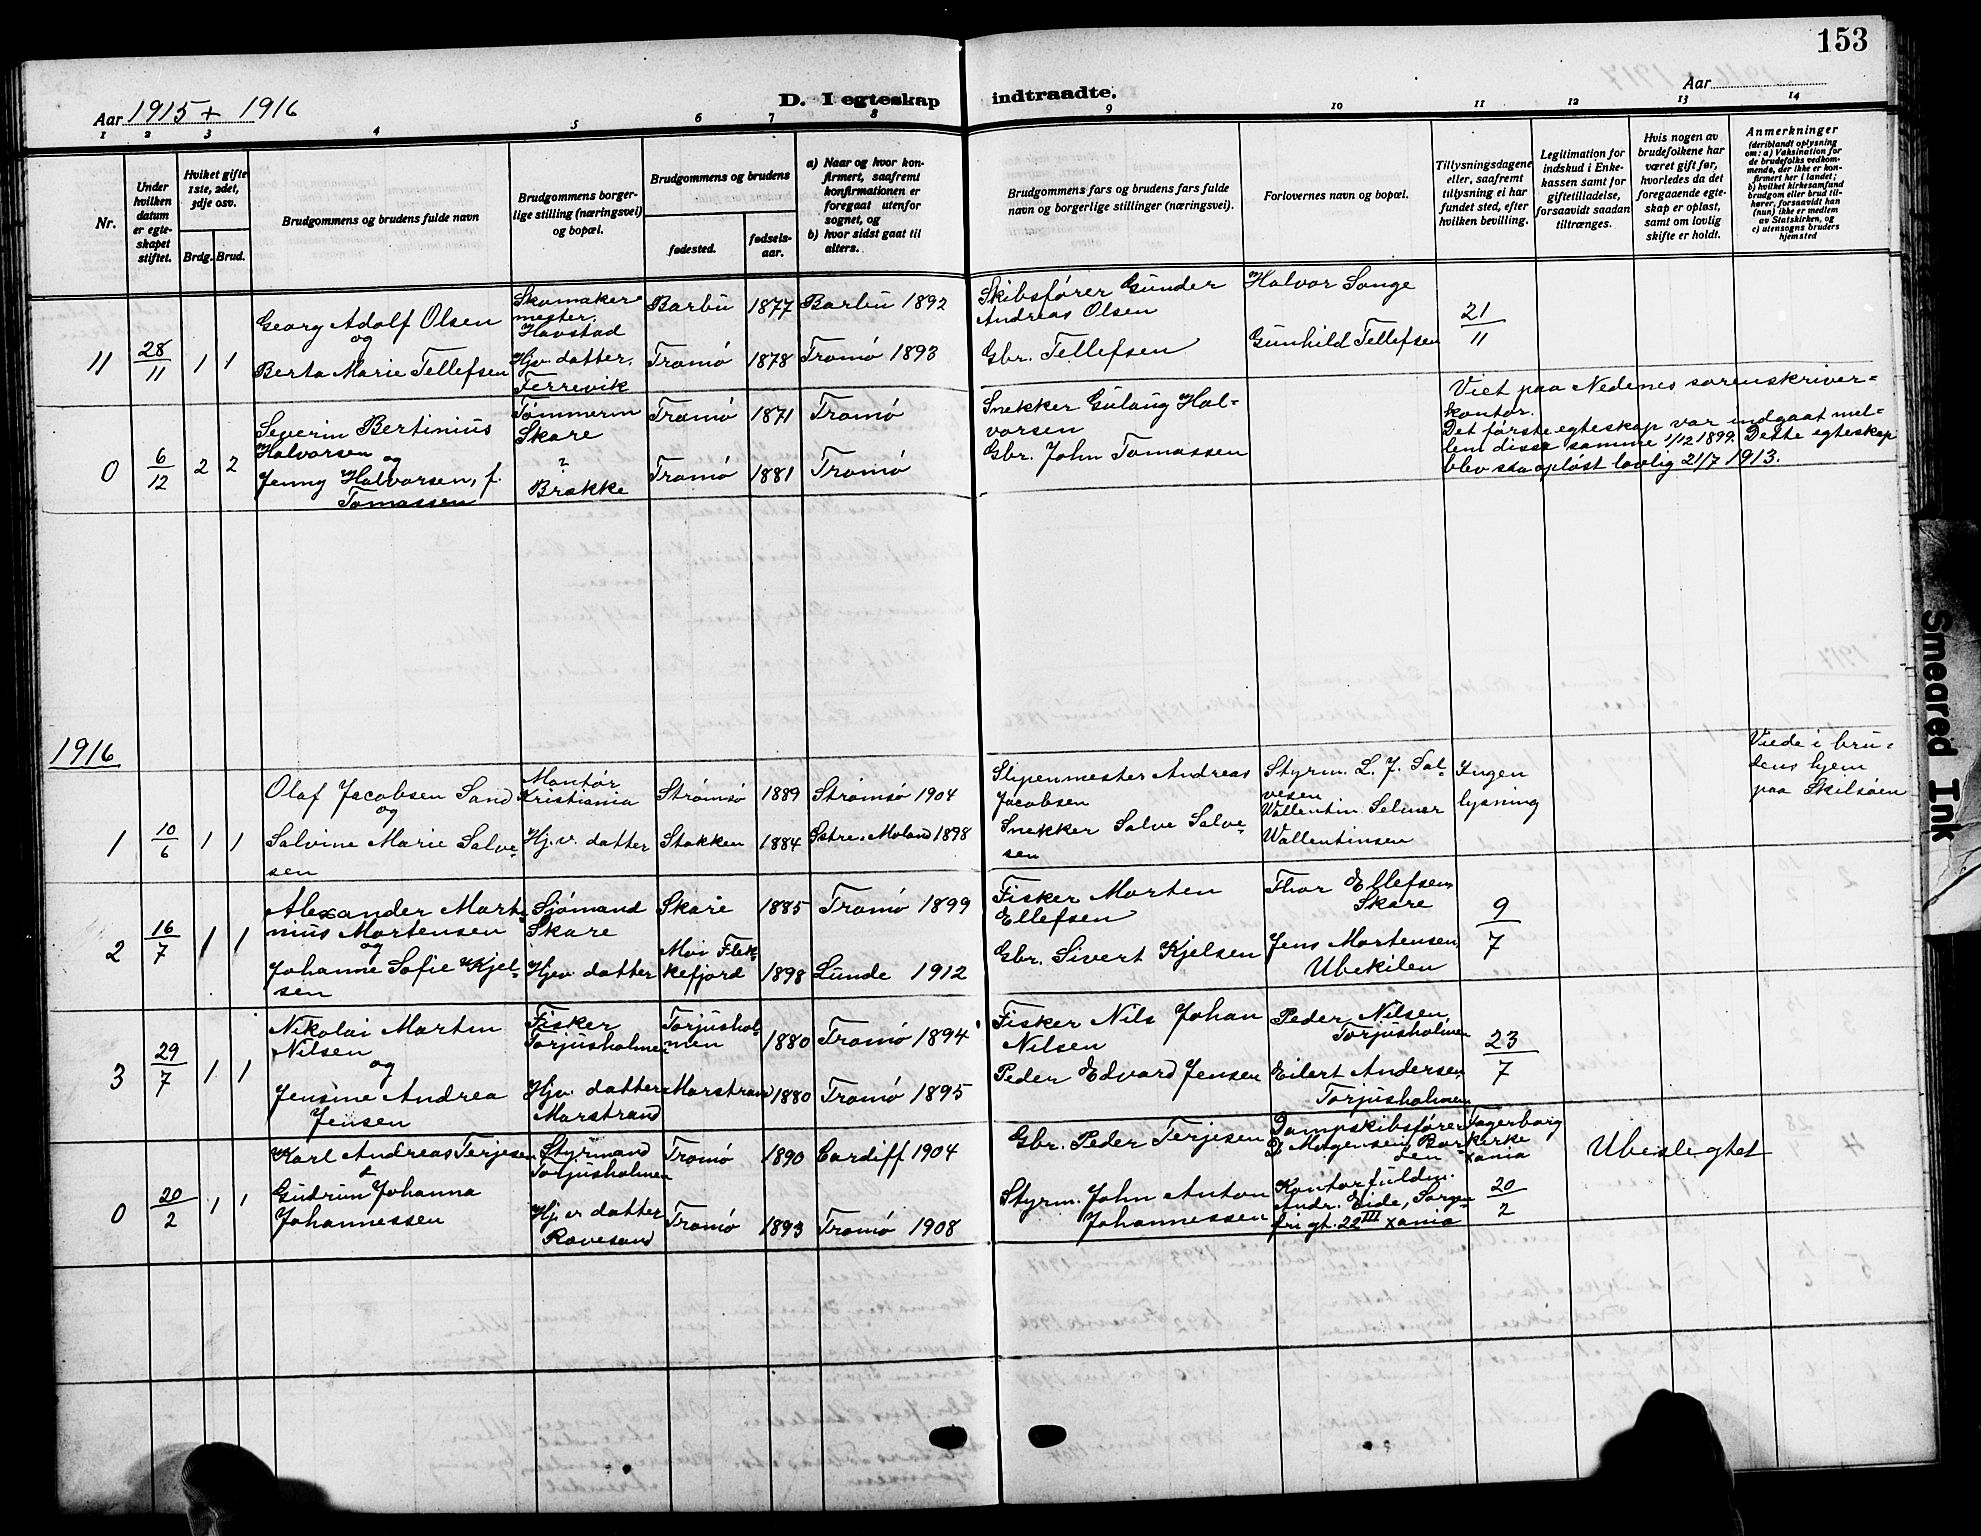 153
Aar 1915 + 1916
D. I egteskap indtraadte.
Aar
1 2 3 4 5 6 7 8 9 10 11 12 13 14
Nr.
Under hvilken datum er egteskapet stiftet.
Hvilket gifte 1ste, 2det, 3dje osv.
Brdg. Brud.
Brudgommens og brudens fulde navn
Brudgommens borgerlige stilling (næringsvei) og bopæl.
Brudgommens og brudens
fødested.
fødselsaar.
a) Naar og hvor konfirmert, saafremt konfirmationen er foregaat utenfor sognet, og
b) hvor sidst gaat til alters.
Brudgommens fars og brudens fars fulde navn og borgerlige stillinger (næringsvei).
Forlovernes navn og bopæl.
Tillysningsdagene eller, saafremt tillysning ei har fundet sted, efter hvilken bevilling.
Legitimation for indskud i Enkekassen samt for giftetilladelse, forsaavidt saadan tiltrænges.
Hvis nogen av brudefolkene har været gift før, hvorledes da det foregaaende egteskap er opløst, samt om lovlig skifte er holdt.
Anmerkninger
(deriblandt oplysning om: a) Vaksination for de brudefolks vedkommende, der ikke er konfirmert her i landet; b) hvilket kirkesamfund brudgom eller brud tilhører, forsaavidt han (hun) ikke er medlem av Statskirken, og c) utensogns bruders hjemsted
11 28/11 1 1
Georg Adolf Olsen
og
Berta Marie Tellefsen
Skomakermester, Havstad
Hjv. datter, Færrevik
Barbu 1877 Barbu 1892
Tromø 1878 Tromø 1893
Skibsfører Gunder Andreas Olsen
Gbr. Tellefsen
Halvor Songe
Gunhild Tellefsen
21/11
0 6/12 2 2
Severin Bertinius
Halvorsen og
Jenny Halvorsen, f.
Tomassen
Tømmerm
Skare
?
Brække
Tromø 1871 Tromø
Tromø 1881 Tromø
Snekker Gulaug Halvorsen
Gbr. John Tomassen
Viet paa Nedenes sorenskriver=
kontor.
Det første egteskap var indgaat mel=
lem disse samme 1/12 1899. Dette egteskap
blev saa opløst lovlig 21/7 1913.
1916
1 10/6 1 1
Olaf Jacobsen Sand
og
Salvine Marie Salve=
sen
Montør
Kristiania
Hj.v. datter
Strømsø 1889 Strømsø 1904
Stokken 1884 Østre Moland 1898
Slipenmester Andreas
Jacobsen
Snekker Salve Salve=
sen
Styrm. L. J. Sal=
vesen
Wallentin Selmer
Wallentinsen
Ingen
lysning
Viede i bru=
dens hjem
paa Skilsøen
2 16/7 1 1
Alexander Mart=
nius Mortensen
og
Johanne Sofie Kjel=
sen
Sjømand
Skare
Hjv. datter
Skare 1885 Tromø 1899
Moi Flek=
kefjord 1898 Lunde 1912
Fisker Morten
Ellefsen
Gbr. Sivert Kjelsen
Thor Ellefsen,
Skare
Jens Mortensen,
Ubekilen
9/7
3 29/7 1 1
Nikolai Martin
Nilsen
og
Jensine Andrea
Jensen
Fisker
Torjusholmen
Hjv. datter
Marstrand
Torjushol=
men 1880 Tromø 1894
Marstrand 1880 Tromø 1895
Fisker Nils Johan
Nilsen
Peder Edvard Jensen
Peder Nilsen,
Torjusholmen
Eilert Andersen,
Torjusholmen
23/7
0 20/2 1 1
Karl Andreas Terjesen
&
Gudrun Johanna
Johannessen
Styrmand
Torjusholmen
Hj.v. datter
Revesand
Tromø 1890 Cardiff 1904
Tromø 1893 Tromø 1908
Gbr. Peder Terjesen
Styrm. John Anton
Johannessen
Dampskibsfører
Kontorfuldm.
Andr. Eide, Sorgen=
fri gt. 22 III Xania
Fagerborg
kirke
Xania
20/2
Ubeslegtet
Smeared Ink